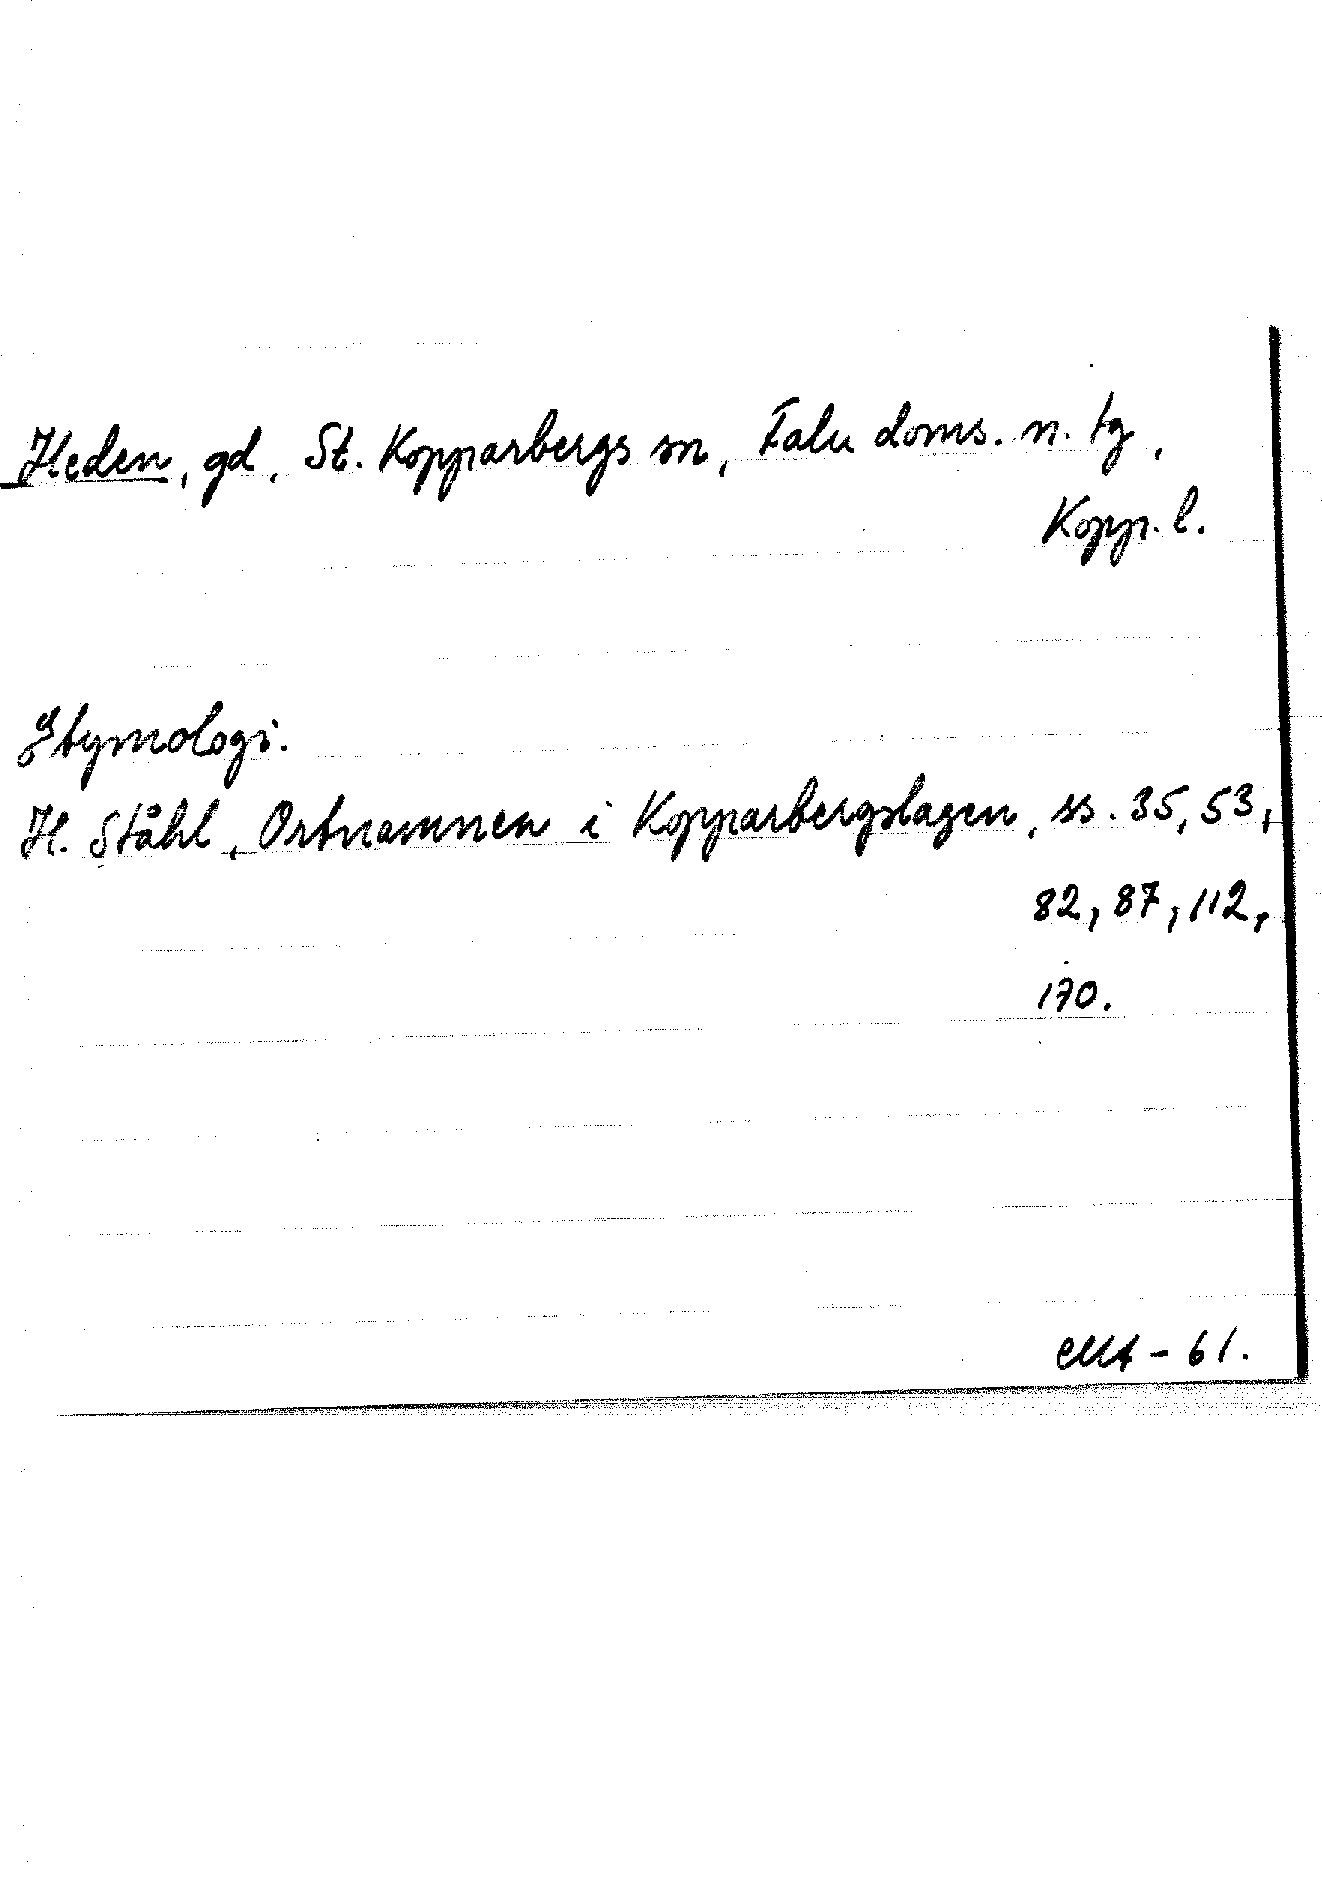 Heden, gd, St. Kopparbergs sn, Falu doms. n. tg,
Kopp. l.
Etymologi.
H. Ståhl, Ortnamnen i Kopparbergslagen, ss. 35, 53,
82, 87, 112,
170.
- 61.